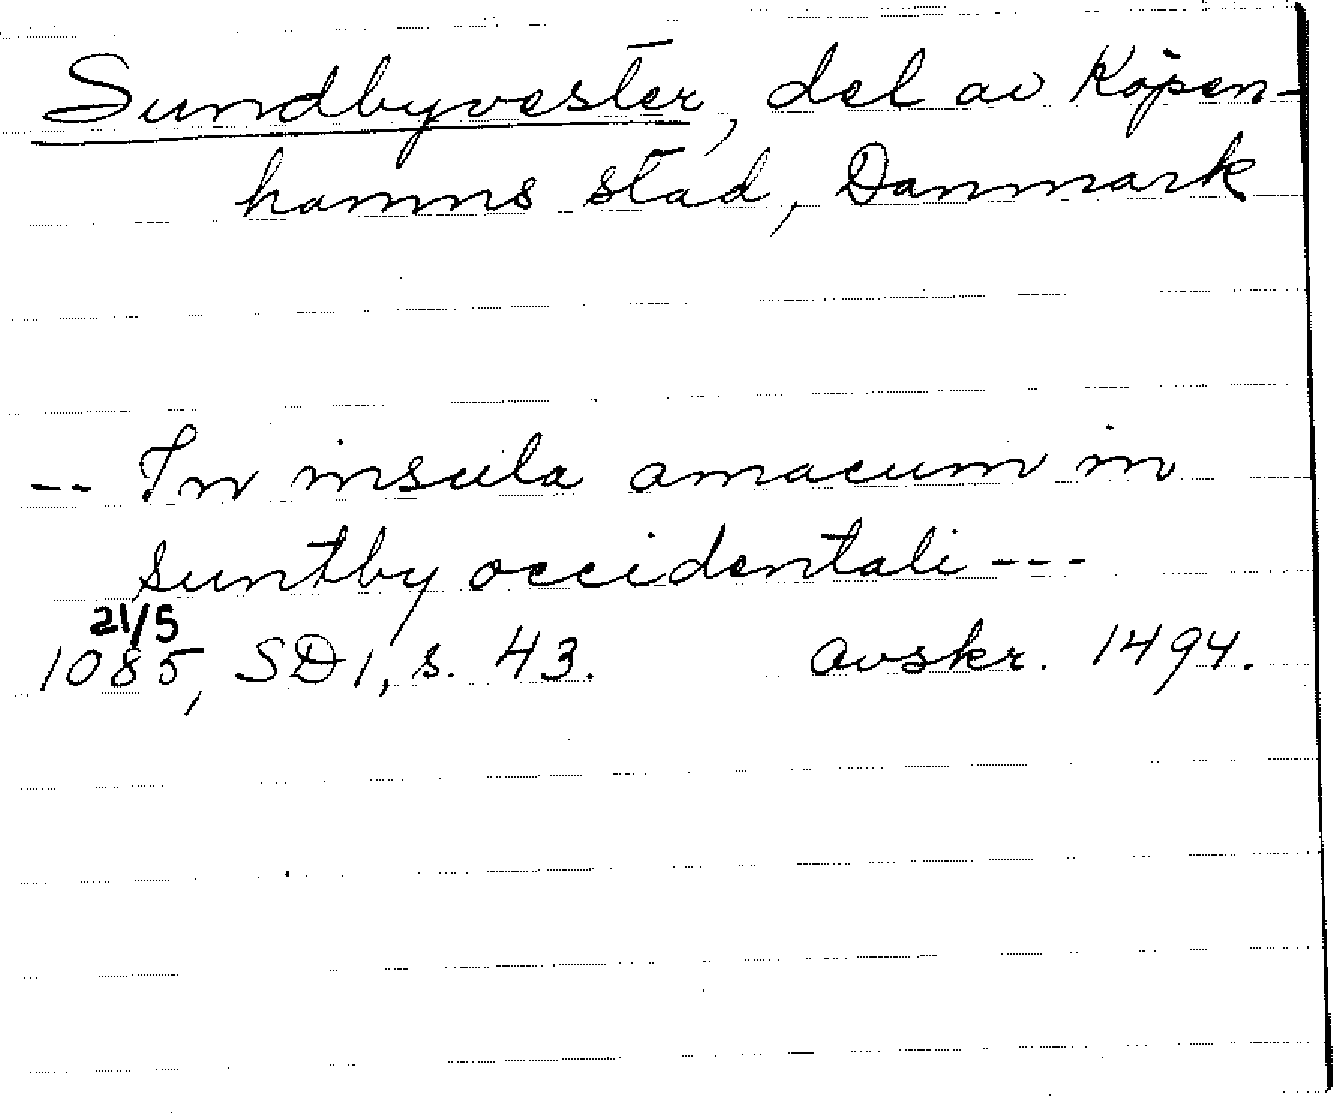 Sundbyvester, del av Köpen-
hamns stad, Danmark
-- In insula amacum in
suntby occidentali ---
21/5
1085, SD 1, s. 43. avskr. 1494.